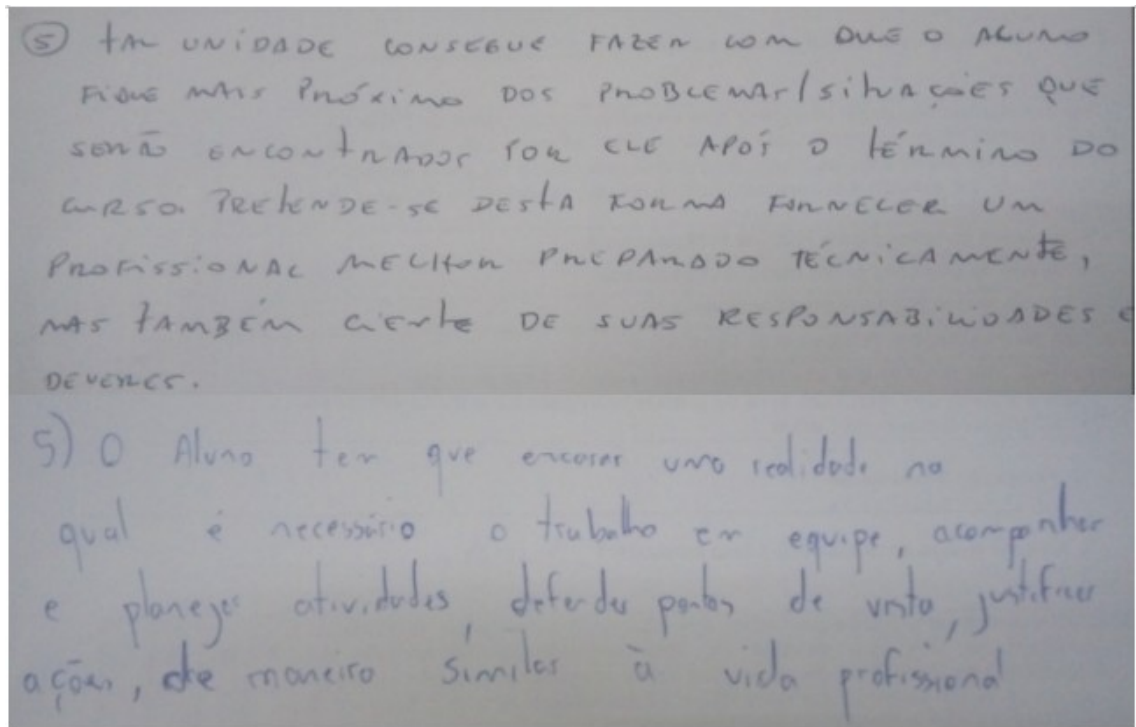 ⑤ TAL UNIDADE CONSEGUE FAZER COM QUE O ALUNO
FIQUE MAIS PRÓXIMO DOS PROBLEMAS/SITUAÇÕES QUE
SERÃO ENCONTRADOS POR ELE APÓS O TÉRMINO DO
CURSO. PRETENDE-SE DESTA FORMA FORNECER UM
PROFISSIONAL MELHOR PREPARADO TÉCNICAMENTE,
MAS TAMBÉM CIENTE DE SUAS RESPONSABILIDADES E
DEVERES.
5) O Aluno tem que encarar uma realidade na
qual é necessário o trabalho em equipe, acompanhar
e planejar atividades, defender pontos de vista, justificar
ações, de maneira similar à vida profissional